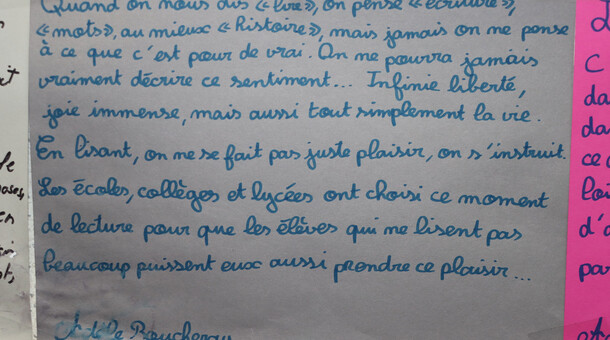 Quand on nous dis «lire», on pense «écriture»,
«mots», au mieux «histoire», mais jamais on ne pense
à ce que c'est pour de vrai. On ne pourra jamais
vraiment décrire ce sentiment... Infinie liberté,
joie immense, mais aussi tout simplement la vie.
En lisant, on ne se fait pas juste plaisir, on s'instruit.
Les écoles, collèges et lycées ont choisi ce moment
de lecture pour que les élèves qui ne lisent pas
beaucoup puissent eux aussi prendre ce plaisir...
Adèle
C
da
da
ce
loi
d'
par